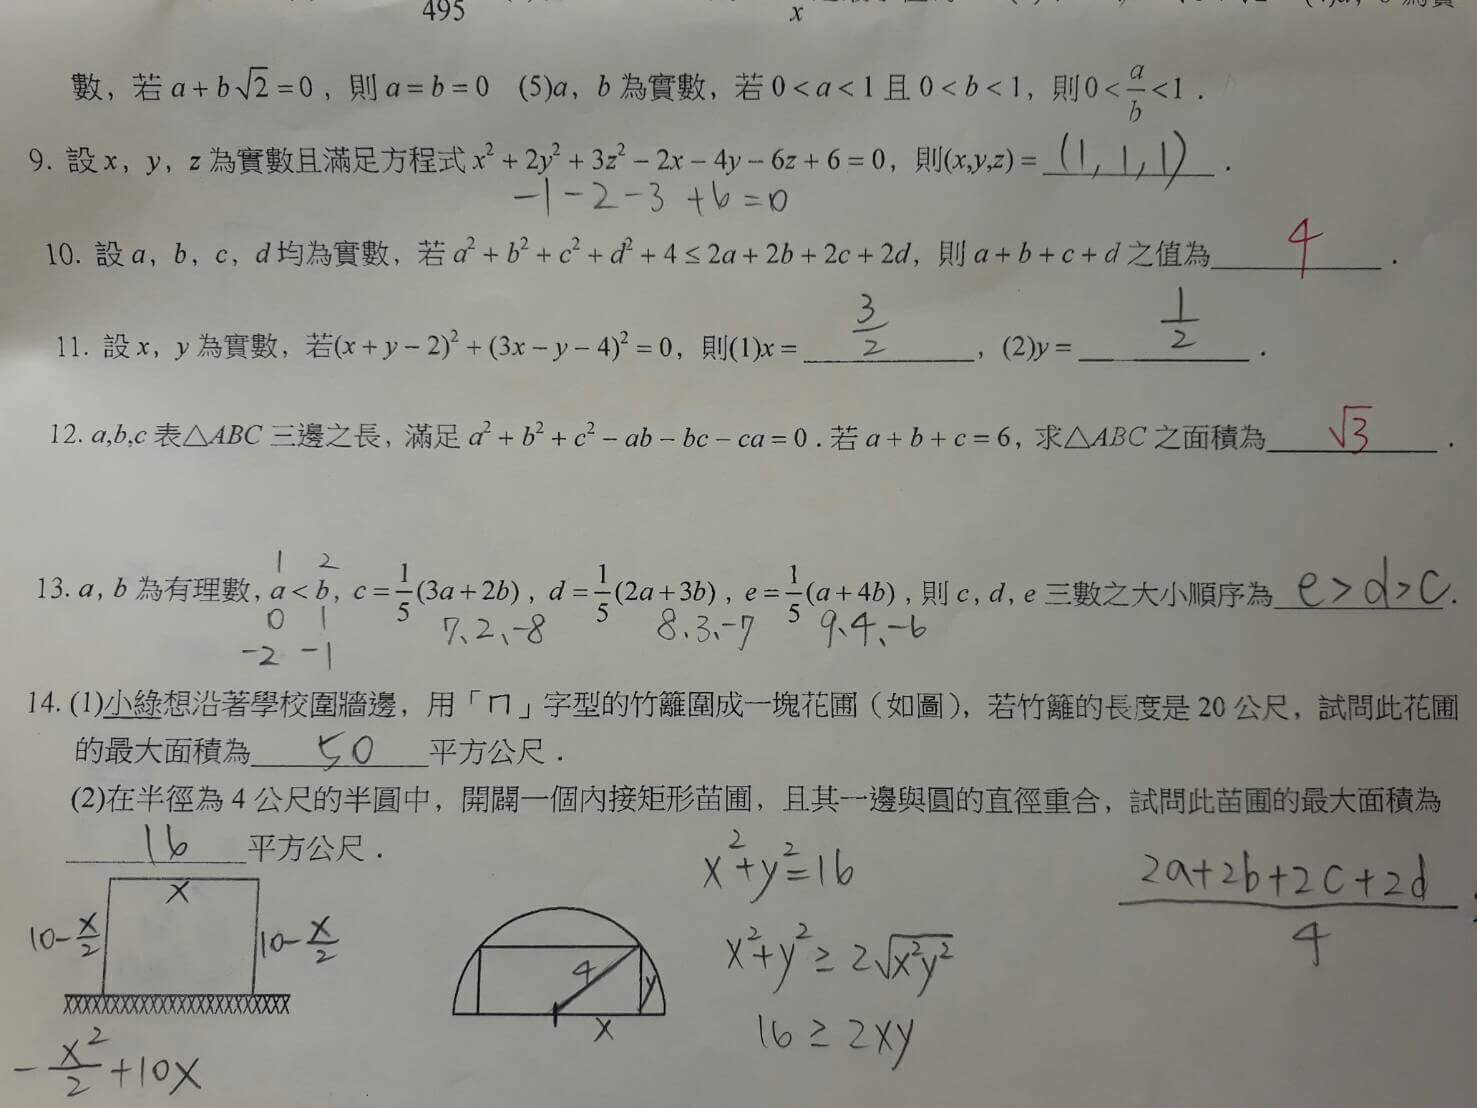 495
x
數，若 a + b√2 = 0，則 a = b = 0 (5)a，b 為實數，若 0 < a < 1 且 0 < b < 1，則 0 < a/b < 1．
9. 設 x，y，z 為實數且滿足方程式 x² + 2y² + 3z² − 2x − 4y − 6z + 6 = 0，則(x,y,z) = (1, 1, 1)．
−1−2−3 +6=0
10. 設 a，b，c，d 均為實數，若 a² + b² + c² + d² + 4 ≤ 2a + 2b + 2c + 2d，則 a + b + c + d 之值為 4．
11. 設 x，y 為實數，若(x + y − 2)² + (3x − y − 4)² = 0，則(1)x = 3/2，(2)y = 1/2．
12. a,b,c 表△ABC 三邊之長，滿足 a² + b² + c² − ab − bc − ca = 0．若 a + b + c = 6，求△ABC 之面積為 √3．
1 2
13. a, b 為有理數, a < b, c = 1/5(3a + 2b)，d = 1/5(2a + 3b)，e = 1/5(a + 4b)，則 c, d, e 三數之大小順序為 e>d>c．
0 1 7、2、-8 8、3、-7 9、4、-6
-2 -1
14. (1)小綠想沿著學校圍牆邊，用「ㄇ」字型的竹籬圍成一塊花圃（如圖），若竹籬的長度是 20 公尺，試問此花圃
的最大面積為 50 平方公尺．
(2)在半徑為 4 公尺的半圓中，開闢一個內接矩形苗圃，且其一邊與圓的直徑重合，試問此苗圃的最大面積為
16 平方公尺．
x
10-x/2
10-x/2
-x²/2+10x
4
y
x
x²+y²=16
x²+y² ≥ 2√x²y²
16 ≥ 2xy
2a+2b+2c+2d
4